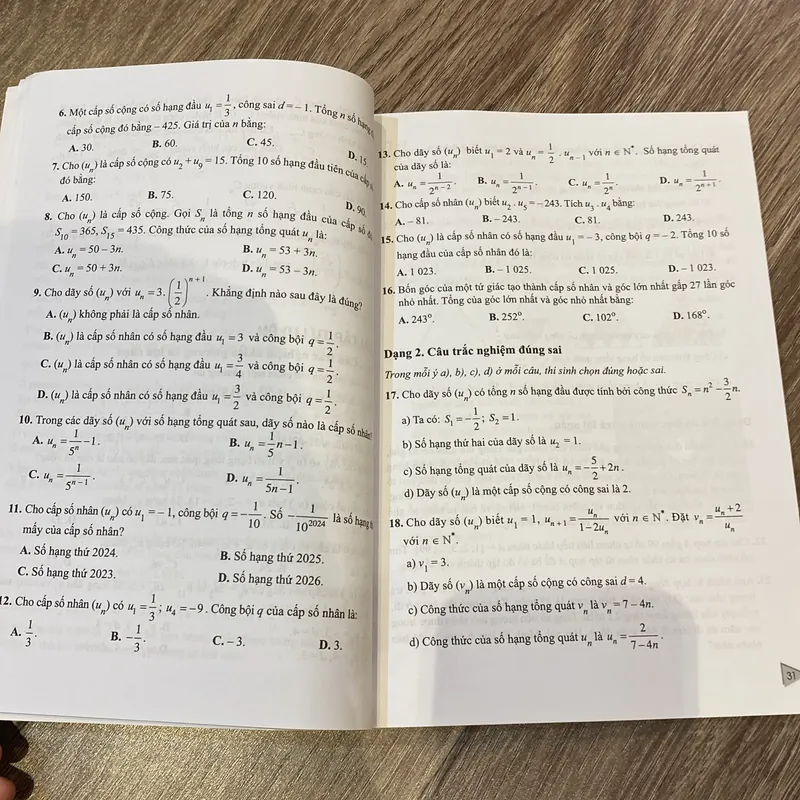 6. Một cấp số cộng có số hạng đầu u₁ = 1/3, công sai d = – 1. Tổng n số hạng
cấp số cộng đó bằng – 425. Giá trị của n bằng:
A. 30. B. 60. C. 45. D. 15
7. Cho (uₙ) là cấp số cộng có u₂ + u₉ = 15. Tổng 10 số hạng đầu tiên của cấp
đó bằng:
A. 150. B. 75. C. 120. D. 90.
8. Cho (uₙ) là cấp số cộng. Gọi Sₙ là tổng n số hạng đầu của cấp số
S₁₀ = 365, S₁₅ = 435. Công thức của số hạng tổng quát uₙ là:
A. uₙ = 50 – 3n. B. uₙ = 53 + 3n.
C. uₙ = 50 + 3n. D. uₙ = 53 – 3n.
9. Cho dãy số (uₙ) với uₙ = 3.(1/2)ⁿ⁺¹. Khẳng định nào sau đây là đúng?
A. (uₙ) không phải là cấp số nhân.
B. (uₙ) là cấp số nhân có số hạng đầu u₁ = 3 và công bội q = 1/2.
C. (uₙ) là cấp số nhân có số hạng đầu u₁ = 3/4 và công bội q = 1/2.
D. (uₙ) là cấp số nhân có số hạng đầu u₁ = 3/2 và công bội q = 1/2.
10. Trong các dãy số (uₙ) với số hạng tổng quát sau, dãy số nào là cấp số nhân?
A. uₙ = 1/5ⁿ – 1. B. uₙ = 1/5 n – 1.
C. uₙ = 1/5ⁿ⁻¹. D. uₙ = 1/(5n – 1).
11. Cho cấp số nhân (uₙ) có u₁ = – 1, công bội q = – 1/10. Số – 1/10²⁰²⁴ là số hạng
mấy của cấp số nhân?
A. Số hạng thứ 2024. B. Số hạng thứ 2025.
C. Số hạng thứ 2023. D. Số hạng thứ 2026.
12. Cho cấp số nhân (uₙ) có u₁ = 1/3; u₄ = –9. Công bội q của cấp số nhân là:
A. 1/3. B. – 1/3. C. – 3. D. 3.
13. Cho dãy số (uₙ) biết u₁ = 2 và uₙ = 1/2 . uₙ₋₁ với n ∈ N*. Số hạng tổng quát
của dãy số là:
A. uₙ = 1/2ⁿ⁻². B. uₙ = 1/2ⁿ⁻¹. C. uₙ = 1/2ⁿ. D. uₙ = 1/2ⁿ⁺¹.
14. Cho cấp số nhân (uₙ) biết u₂ . u₅ = – 243. Tích u₃ . u₄ bằng:
A. – 81. B. – 243. C. 81. D. 243.
15. Cho (uₙ) là cấp số nhân có số hạng đầu u₁ = – 3, công bội q = – 2. Tổng 10 số
hạng đầu của cấp số nhân đó là:
A. 1 023. B. – 1 025. C. 1 025. D. – 1 023.
16. Bốn góc của một tứ giác tạo thành cấp số nhân và góc lớn nhất gấp 27 lần góc
nhỏ nhất. Tổng của góc lớn nhất và góc nhỏ nhất bằng:
A. 243º. B. 252º. C. 102º. D. 168º.
Dạng 2. Câu trắc nghiệm đúng sai
Trong mỗi ý a), b), c), d) ở mỗi câu, thí sinh chọn đúng hoặc sai.
17. Cho dãy số (uₙ) có tổng n số hạng đầu được tính bởi công thức Sₙ = n² – 3/2 n.
a) Ta có: S₁ = – 1/2; S₂ = 1.
b) Số hạng thứ hai của dãy số là u₂ = 1.
c) Số hạng tổng quát của dãy số là uₙ = – 5/2 + 2n.
d) Dãy số (uₙ) là một cấp số cộng có công sai là 2.
18. Cho dãy số (uₙ) biết u₁ = 1, uₙ₊₁ = uₙ/(1 – 2uₙ) với n ∈ N*. Đặt vₙ = (uₙ + 2)/uₙ
với n ∈ N*.
a) v₁ = 3.
b) Dãy số (vₙ) là một cấp số cộng có công sai d = 4.
c) Công thức của số hạng tổng quát vₙ là vₙ = 7 – 4n.
d) Công thức của số hạng tổng quát uₙ là uₙ = 2/(7 – 4n).
31